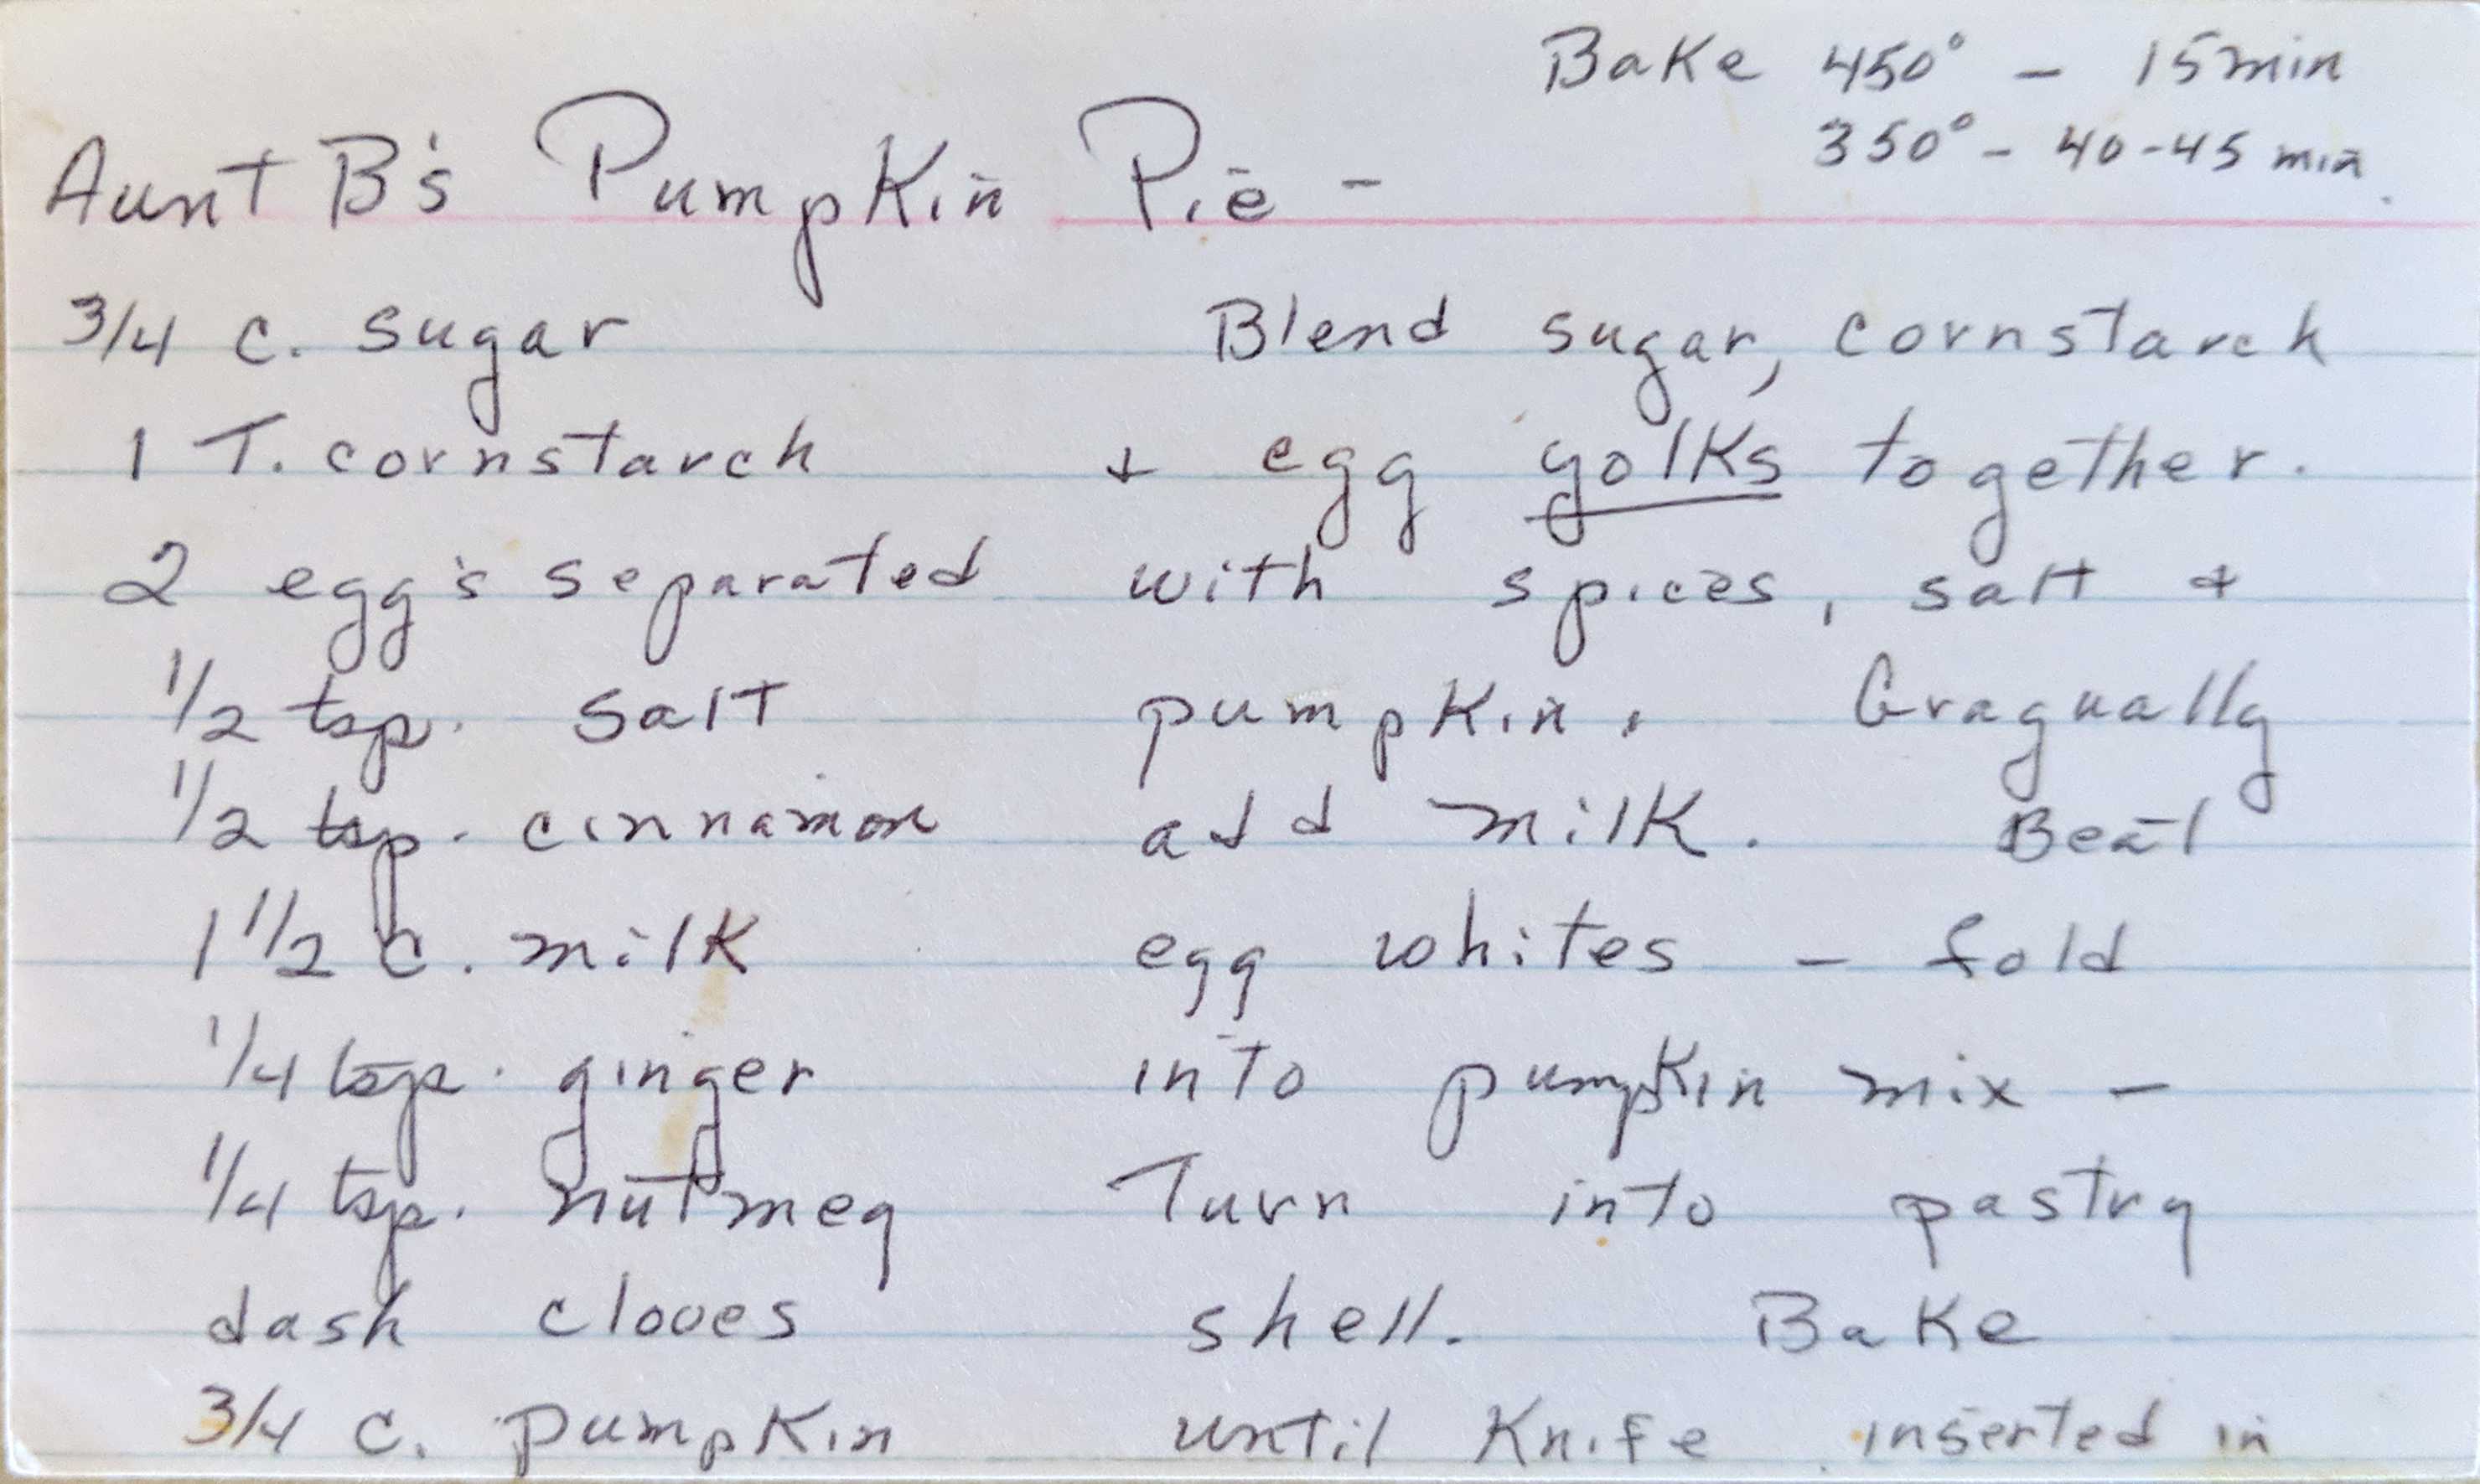 Bake 450° - 15 min
350° - 40-45 min.
Aunt B's Pumpkin Pie -
3/4 c. sugar
1 T. cornstarch
2 egg's separated
1/2 tsp. salt
1/2 tsp. cinnamon
1 1/2 c. milk
1/4 tsp. ginger
1/4 tsp. nutmeg
dash cloves
3/4 c. pumpkin
Blend sugar, cornstarch
+ egg yolks together.
with spices, salt +
pumpkin. Gragually
add milk. Beat
egg whites - fold
into pumpkin mix -
Turn into pastry
shell. Bake
until Knife inserted in